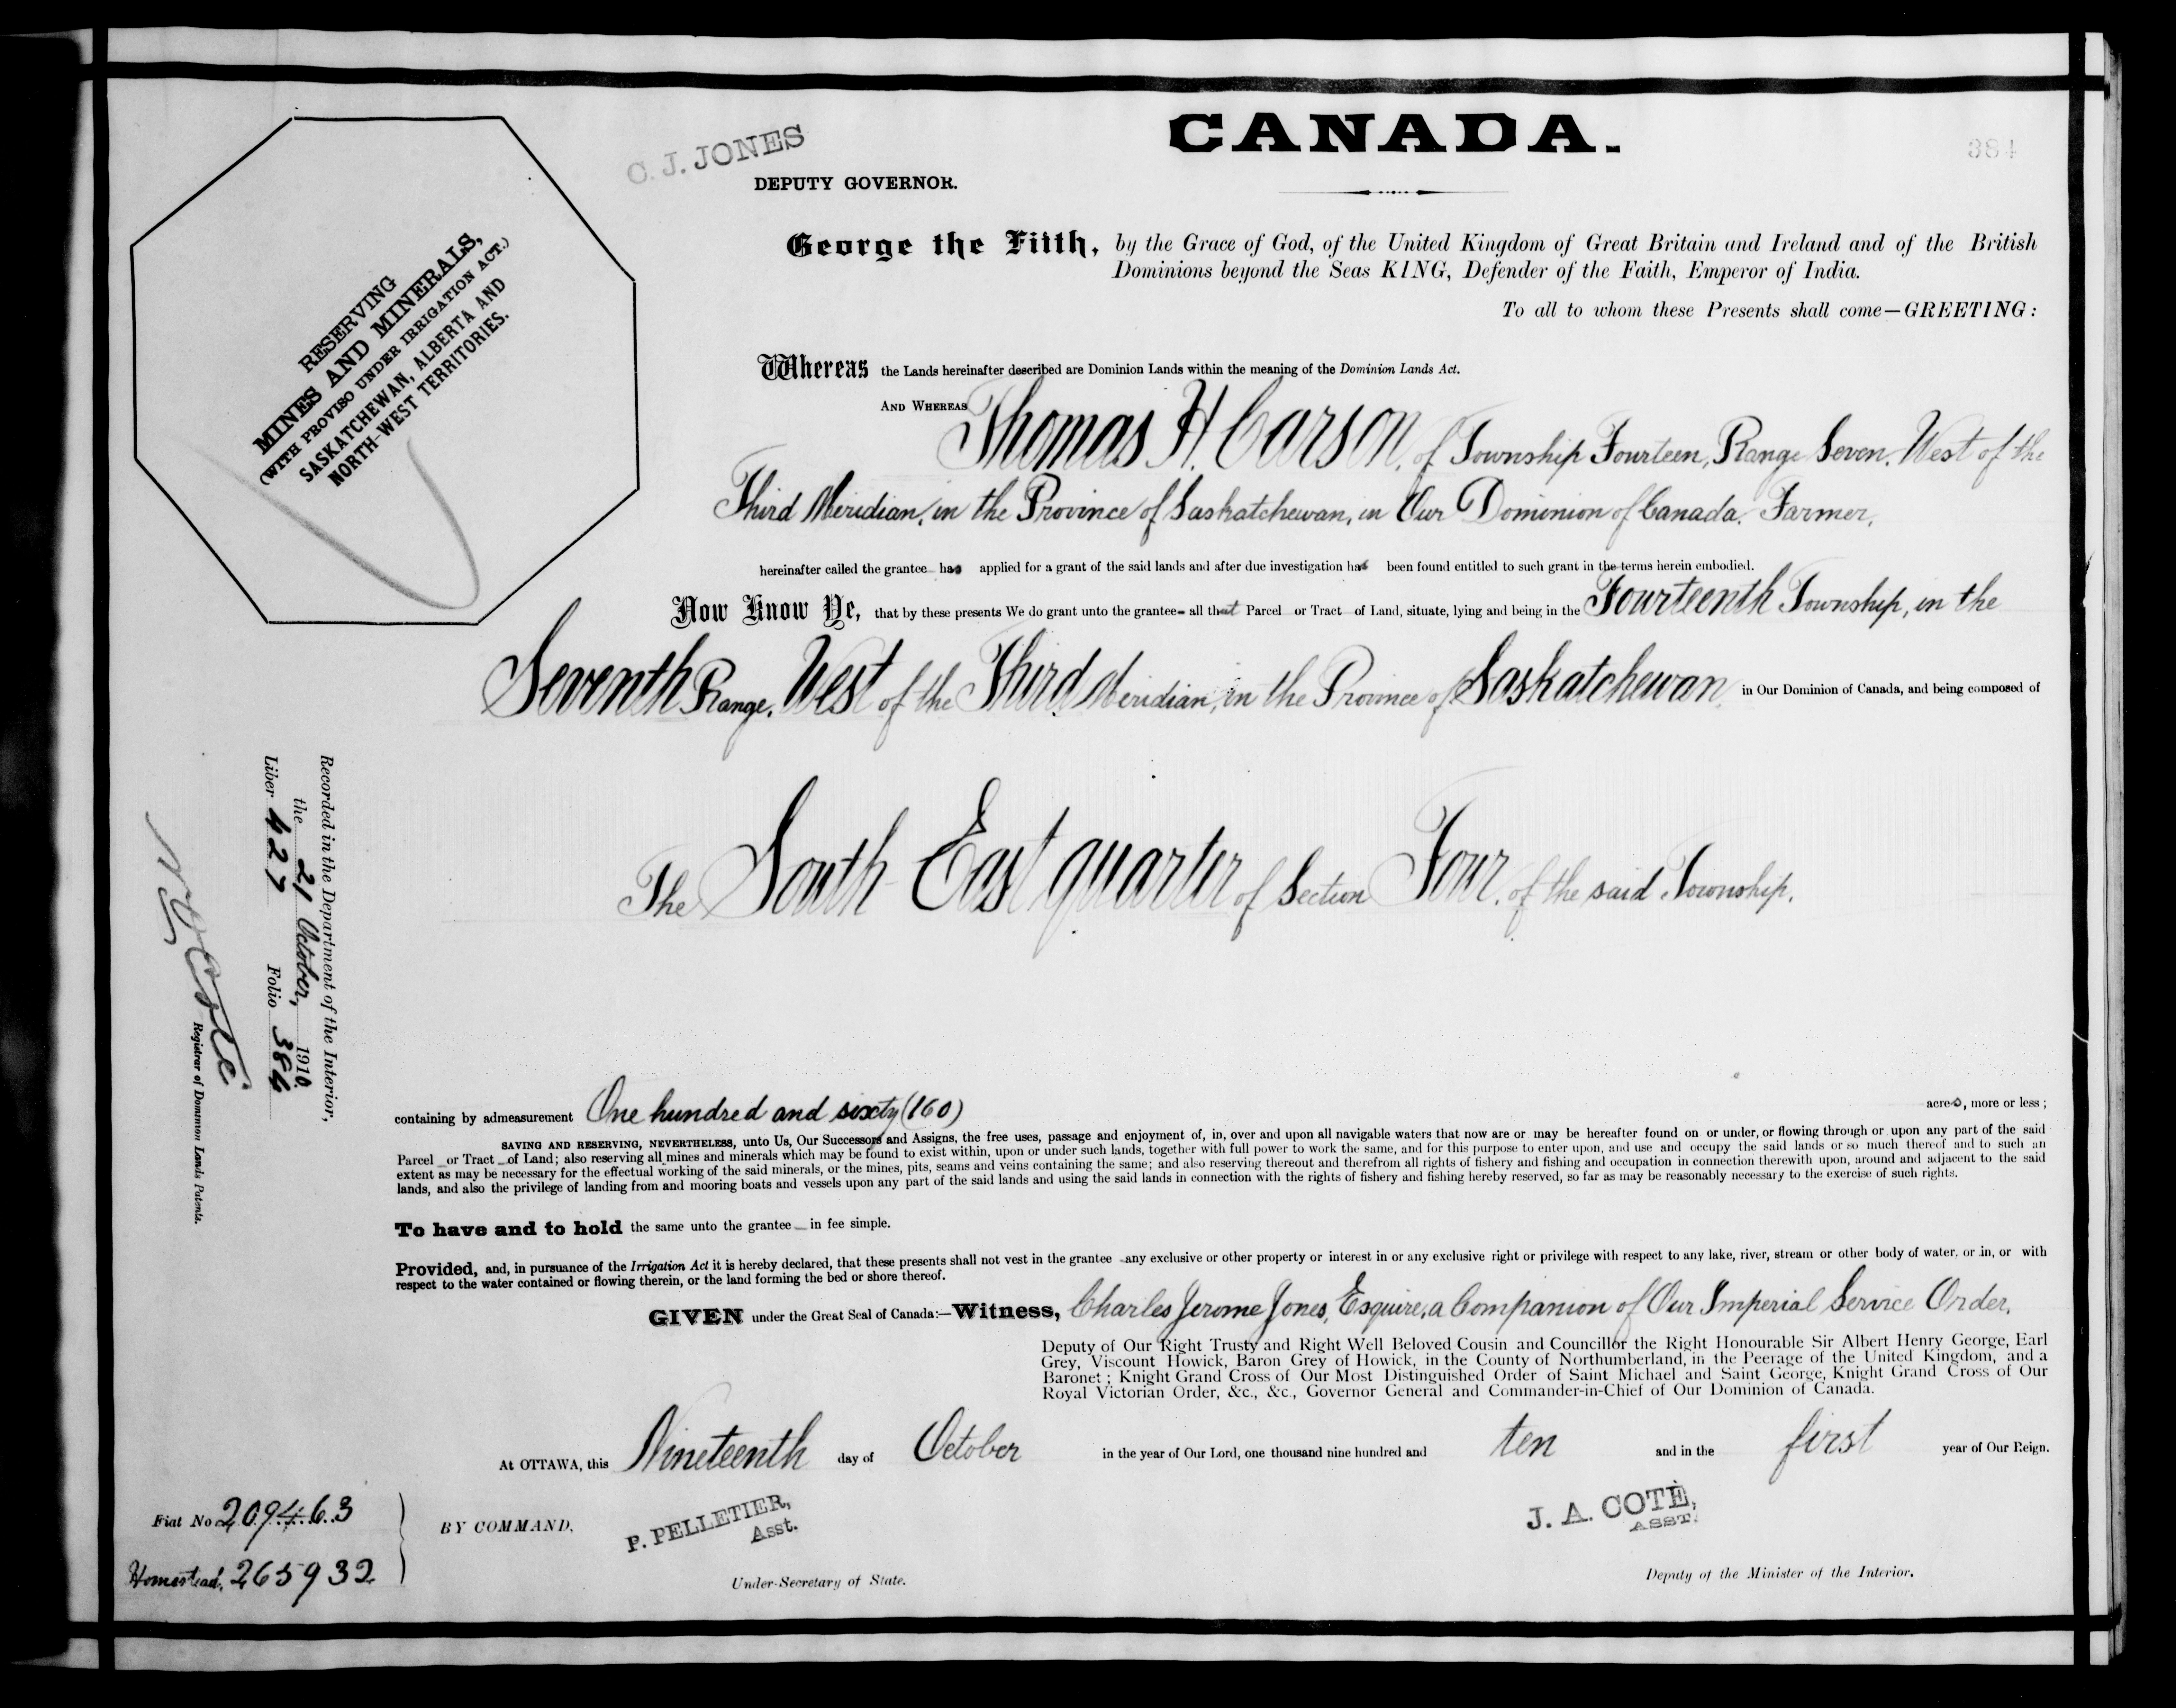 CANADA.
384
C. J. JONES
DEPUTY GOVERNOR.
George the Fifth, by the Grace of God, of the United Kingdom of Great Britain and Ireland and of the British
Dominions beyond the Seas KING, Defender of the Faith, Emperor of India.
To all to whom these Presents shall come—GREETING:
RESERVING
MINES AND MINERALS,
(WITH PROVISO UNDER IRRIGATION ACT.)
SASKATCHEWAN, ALBERTA AND
NORTH-WEST TERRITORIES.
Whereas the Lands hereinafter described are Dominion Lands within the meaning of the Dominion Lands Act.
AND WHEREAS Thomas H. Carson, of Township Fourteen, Range Seven, West of the
Third Meridian, in the Province of Saskatchewan, in Our Dominion of Canada, Farmer,
hereinafter called the grantee has applied for a grant of the said lands and after due investigation has been found entitled to such grant in the terms herein embodied.
Now Know Ye, that by these presents We do grant unto the grantee all that Parcel or Tract of Land, situate, lying and being in the Fourteenth Township, in the
Seventh Range, West of the Third Meridian, in the Province of Saskatchewan, in Our Dominion of Canada, and being composed of
The South East quarter of Section Four, of the said Township.
Recorded in the Department of the Interior,
the 21 October, 1910.
Liber 427 Folio 384
Registrar of Dominion Lands Patents.
containing by admeasurement One hundred and sixty (160) acres, more or less;
SAVING AND RESERVING, NEVERTHELESS, unto Us, Our Successors and Assigns, the free uses, passage and enjoyment of, in, over and upon all navigable waters that now are or may be hereafter found on or under, or flowing through or upon any part of the said
Parcel or Tract of Land; also reserving all mines and minerals which may be found to exist within, upon or under such lands, together with full power to work the same, and for this purpose to enter upon, and use and occupy the said lands or so much thereof and to such an
extent as may be necessary for the effectual working of the said minerals, or the mines, pits, seams and veins containing the same; and also reserving thereout and therefrom all rights of fishery and fishing and occupation in connection therewith upon, around and adjacent to the said
lands, and also the privilege of landing from and mooring boats and vessels upon any part of the said lands and using the said lands in connection with the rights of fishery and fishing hereby reserved, so far as may be reasonably necessary to the exercise of such rights.
To have and to hold the same unto the grantee in fee simple.
Provided, and, in pursuance of the Irrigation Act it is hereby declared, that these presents shall not vest in the grantee any exclusive or other property or interest in or any exclusive right or privilege with respect to any lake, river, stream or other body of water, or in, or with
respect to the water contained or flowing therein, or the land forming the bed or shore thereof.
GIVEN under the Great Seal of Canada:—Witness, Charles Jerome Jones, Esquire, a Companion of Our Imperial Service Order,
Deputy of Our Right Trusty and Right Well Beloved Cousin and Councillor the Right Honourable Sir Albert Henry George, Earl
Grey, Viscount Howick, Baron Grey of Howick, in the County of Northumberland, in the Peerage of the United Kingdom, and a
Baronet; Knight Grand Cross of Our Most Distinguished Order of Saint Michael and Saint George, Knight Grand Cross of Our
Royal Victorian Order, &c., &c., Governor General and Commander-in-Chief of Our Dominion of Canada.
At OTTAWA, this Nineteenth day of October in the year of Our Lord, one thousand nine hundred and ten and in the first year of Our Reign.
Fiat No 209463
Homestead, 265932
BY COMMAND,
P. PELLETIER,
Asst.
Under-Secretary of State.
J. A. COTÉ,
ASST.
Deputy of the Minister of the Interior.